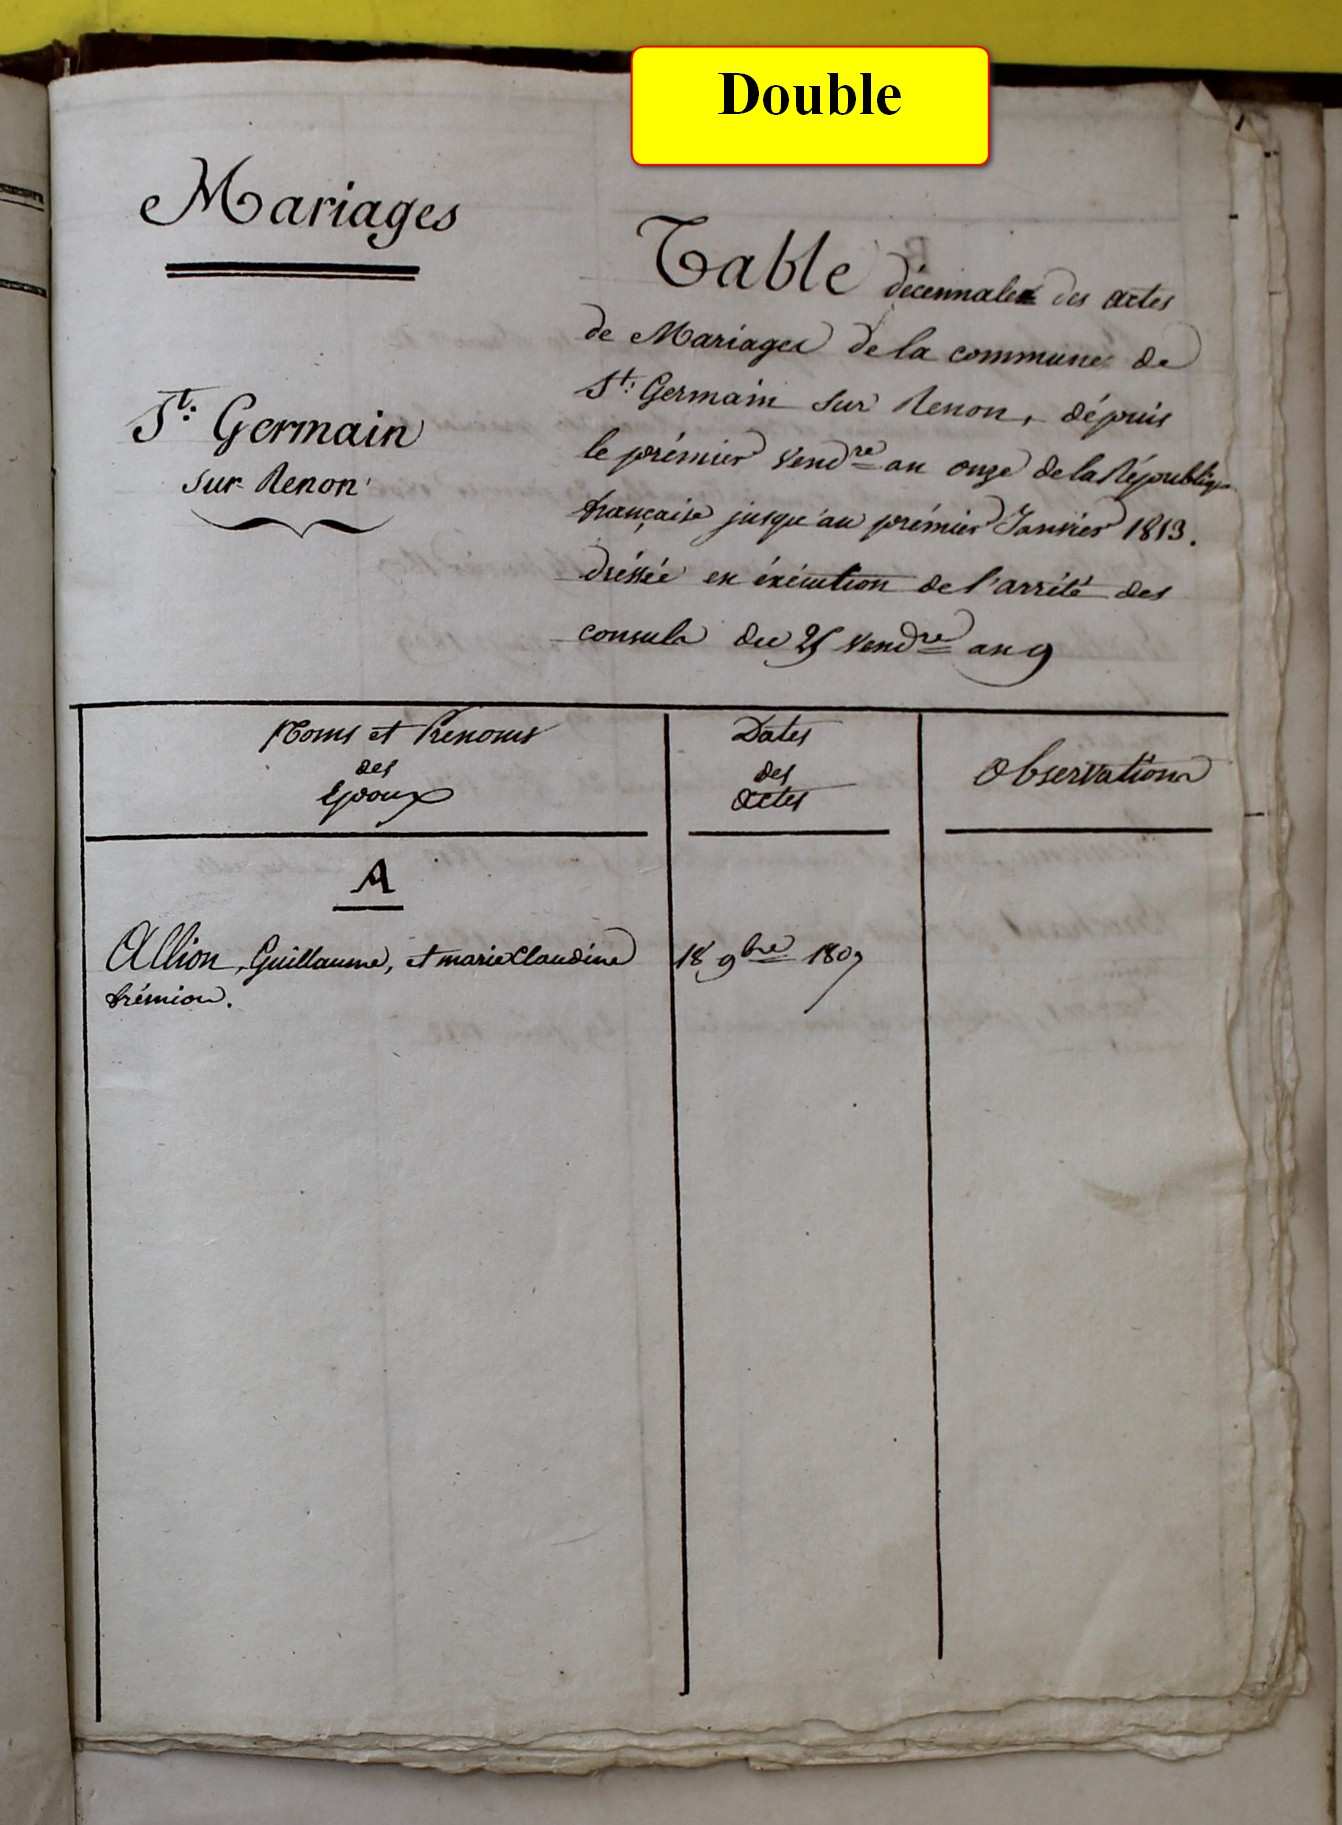 Double
Mariages
St: Germain
sur Renon
Table décennale des actes
de Mariages de la commune de
St: Germain sur Renon, dépuis
le prémier Vendre an onze de la Républiq
française jusqu'au prémier Janvier 1813.
dréssée en éxécution de l'arrêté des
consuls du 25 Vendre an 9
Noms et Prenoms
des
Epoux
Dates
des
Actes
Observations
A
Allion, Guillaume, et marie Claudine
frémion.
18 9bre 1807